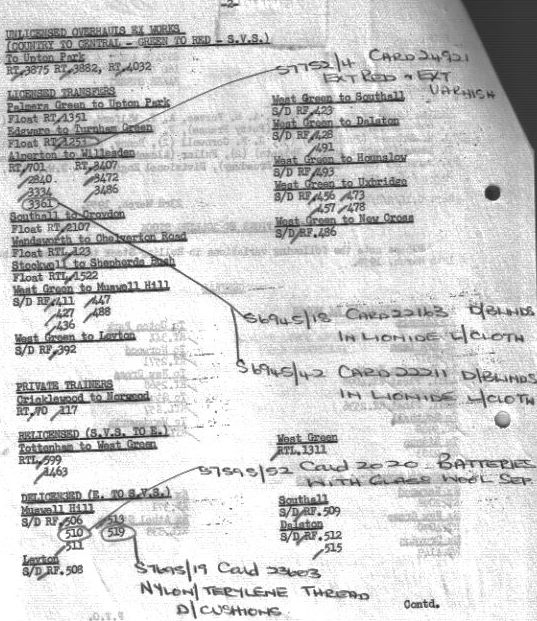 -2-
UNLICENSED OVERHAULS EX WORKS
(COUNTRY TO CENTRAL - GREEN TO RED - S.V.S.)
To Upton Park
RT.3875 RT.3882, RT.4032
LICENSED TRANSFERS
Palmers Green to Upton Park
Float RT.1351
Edgware to Turnham Green
Float RT.1253
Alperton to Willesden
RT.701 RT.3407
2840 3472
3334 3486
3361
Southall to Croydon
Float RT.2107
Wandsworth to Chelverton Road
Float RTL.123
Stockwell to Shepherds Bush
Float RTL.1522
West Green to Muswell Hill
S/D RF.411 447
427 488
436
West Green to Leyton
S/D RF.392
PRIVATE TRAINERS
Cricklewood to Norwood
RT.70 117
RELICENSED (S.V.S. TO E.)
Tottenham to West Green
RTL.599
1463
DELICENSED (E. TO S.V.S.)
Muswell Hill
S/D RF.506 513
510 519
511
Leyton
S/D RF.508
S7752/4 CARD 24921
EXT RED & EXT
VARNISH
West Green to Southall
S/D RF.423
West Green to Dalston
S/D RF.428
491
West Green to Hounslow
S/D RF.493
West Green to Uxbridge
S/D RF.456 473
457 478
West Green to New Cross
S/D RF.486
S6945/18 CARD 22163 D/BLINDS
IN LIONIDE L/CLOTH
S6945/42 CARD 22211 D/BLINDS
IN LIONIDE L/CLOTH
West Green
RTL.1311
S7595/52 Card 2020 BATTERIES
WITH GLASS WOOL SEP.
Southall
S/D RF.509
Dalston
S/D RF.512
515
S7695/19 Card 23603
NYLON/TERYLENE THREAD
D/CUSHIONS
Contd.